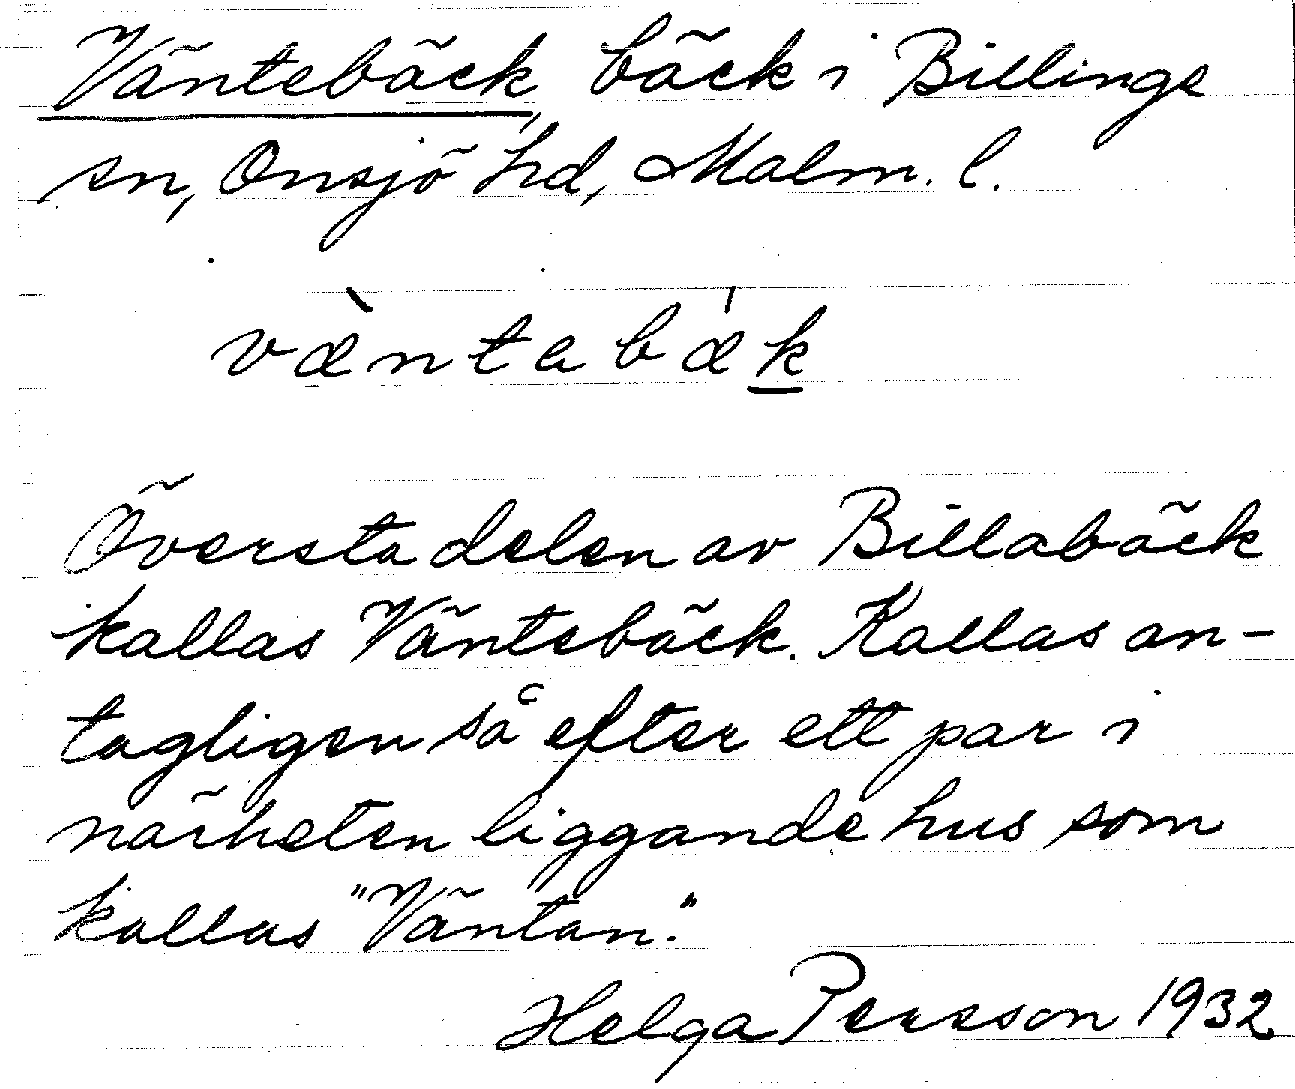 Väntebäck, bäck i Billinge
sn, Onsjö hd, Malm. l.
væ̀ntabǽk
Översta delen av Billabäck
kallas Väntebäck. Kallas an-
tagligen så efter ett par i
närheten liggande hus som
kallas "Väntan."
Helga Persson 1932